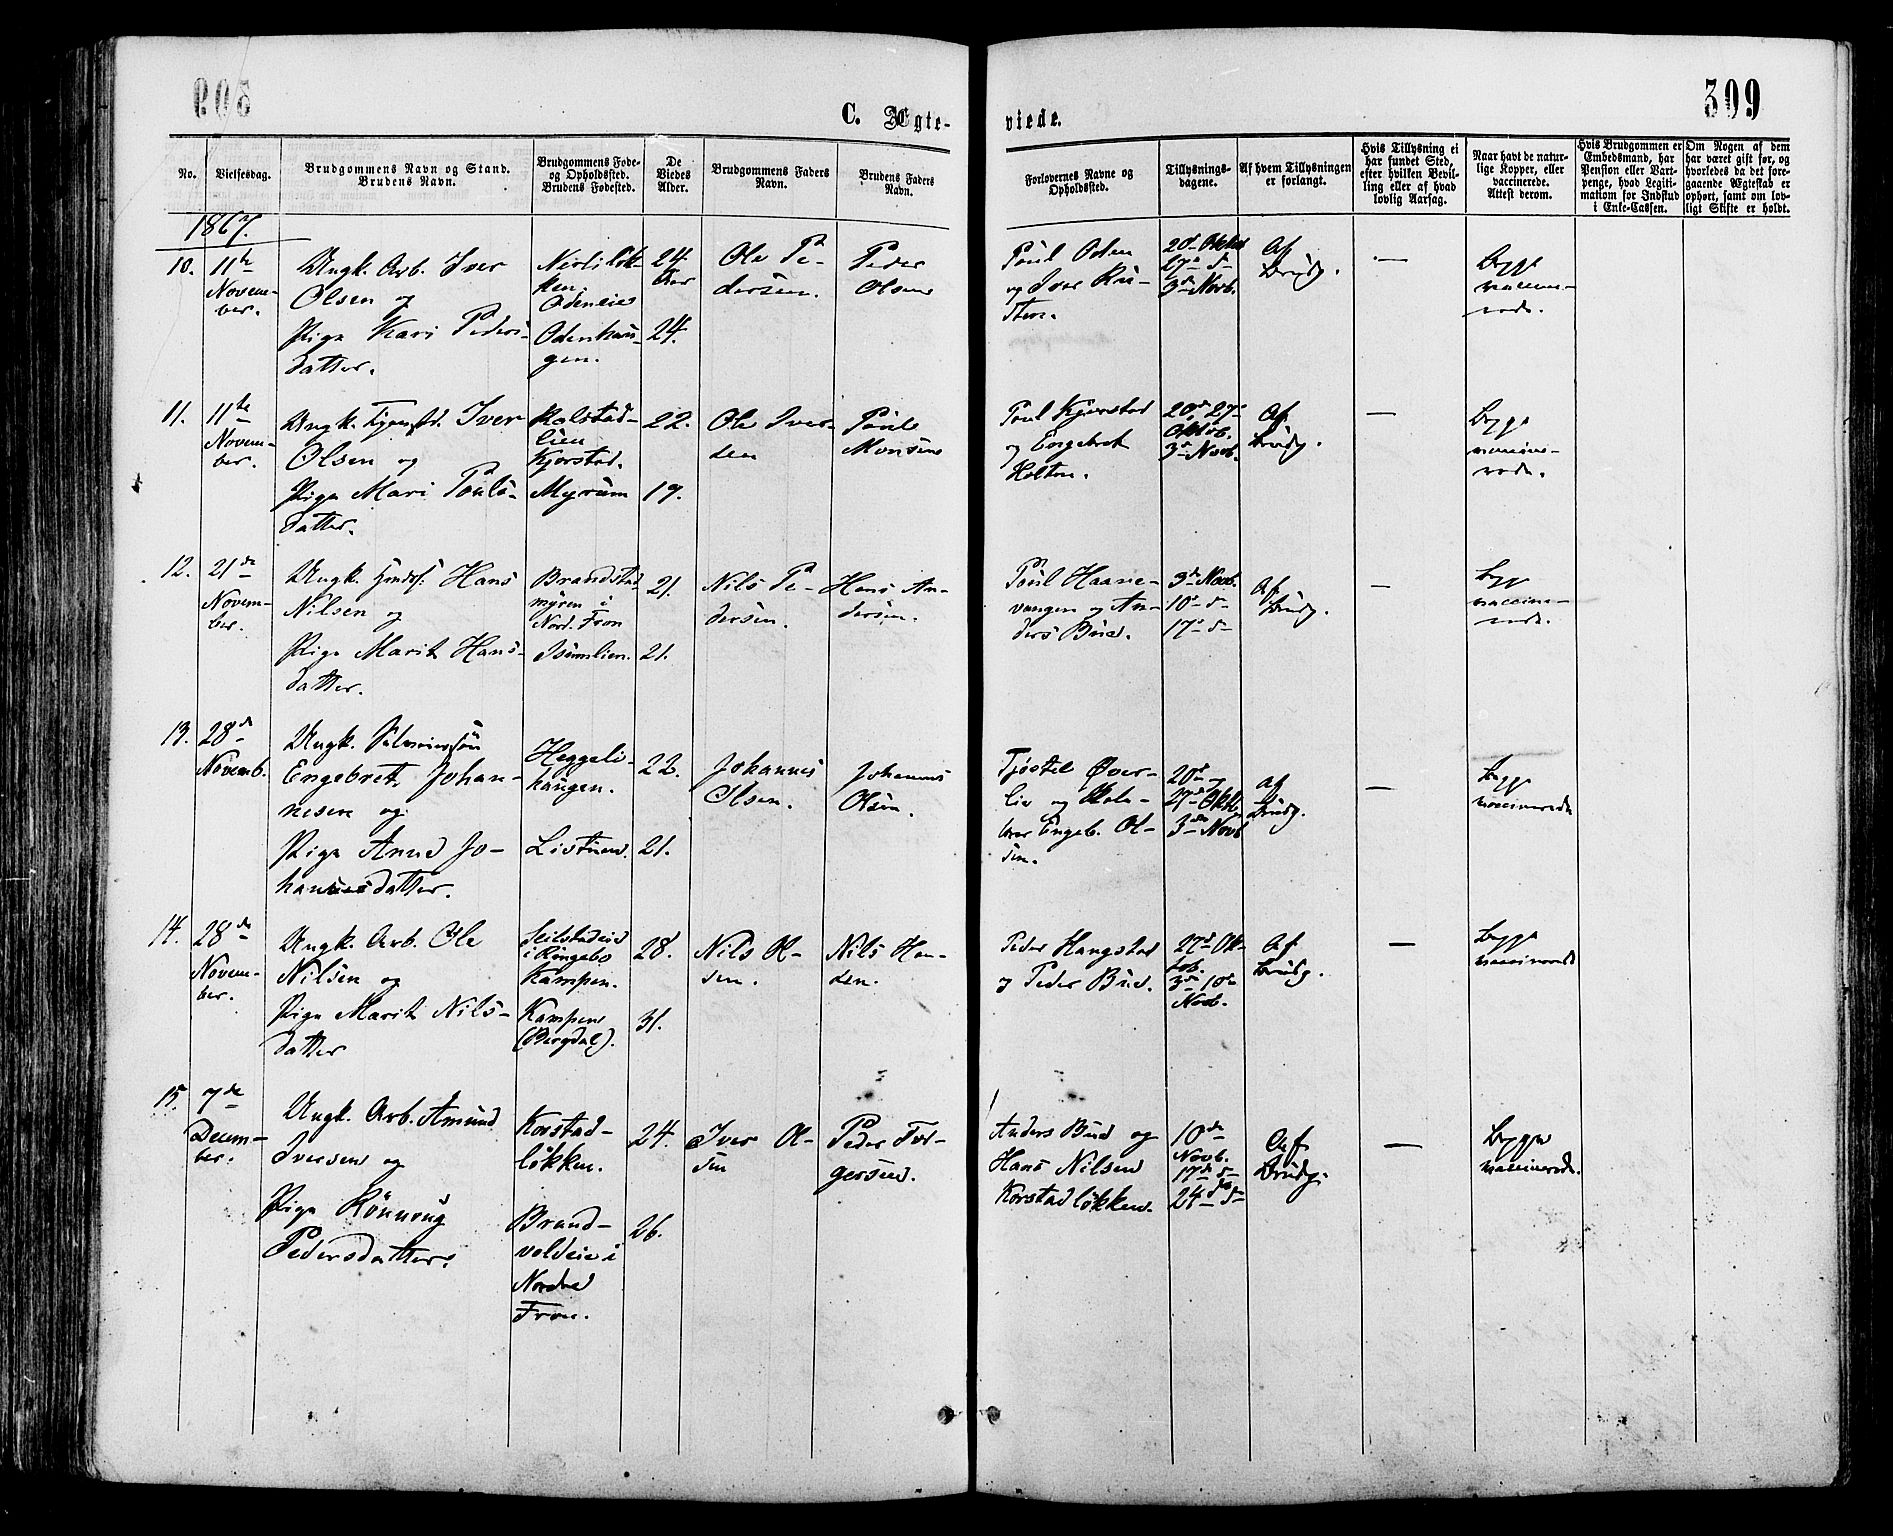 309
C. Ægte-
viede.
No.
Vielsesdag.
Brudgommens Navn og Stand.
Brudens Navn.
Brudgommens Føde-
og Opholdssted.
Brudens Fødested.
De
Viedes
Alder.
Brudgommens Faders
Navn.
Brudens Faders
Navn.
Forlovernes Navne og
Opholdssted.
Tillysnings-
dagene.
Af hvem Tillysningen
er forlangt.
Hvis Tillysning ei
har fundet Sted,
efter hvilken Bevil-
ling eller af hvad
lovlig Aarsag.
Naar havt de natur-
lige Kopper, eller
vaccinerede.
Attest derom.
Hvis Brudgommen er
Embedsmand, har
Pension eller Vart-
penge, hvad Legiti-
mation for Indskud
i Enke-Cassen.
Om Nogen af dem
har været gift før, og
hvorledes da det fore-
gaaende Ægteskab er
ophørt, samt om lov-
ligt Skifte er holdt.
1867.
10.
11te
Novem-
ber.
Ungk. Arb. Iver
Olsen og
Pige Kari Peders-
datter.
ken,
Odeneie
Odenhau-
gen.
24
Aar
24.
Ole Pe-
dersen.
Peder
Olsen
Poul Oden
og Iver
20de Oktob
27de d-
3de Novb.
Af
Brudg.
-
Begge
vaccine-
rede.
11.
11te
Novem-
ber.
Ungk. Iver
Olsen og
Pige Mari Pouls-
datter.
Kolstad-
lien
Kjorstad.
Myrum
22.
19.
Ole Iver-
sen
Poul
Monsen
Poul Kjorstad
og Engebret
Holten.
20de 27de
Oktob.
3de Novb.
Af
Brudg.
-
Begge
vaccine-
rede.
12.
21de
Novem-
ber.
Ungk. Hans
Nilsen og
Pige Marit Hans-
datter.
Brandstad
myren i
Nord. Fron
Isumlien.
21.
21.
Nils Pe-
dersen.
Hans An-
dersen.
Poul Haave-
vangen og An-
ders Bue.
3de Novb.
10de d-
17de d-
Af
Brudg.
-
Begge
vaccine-
rede.
13.
28de
Novemb.
Ungk.
Engebret Johan-
nesen og
Pige Anne Jo-
hannesdatter.
Heggeli-
haugen.
Listuen.
22.
21.
Johannes
Olsen.
Johannes
Olsen.
Tjøstel Øver-
lie og
Engeb. Ol-
sen.
20de og
27de Oktb
3de Novb
Af
Brudg.
-
Begge
vaccinerede
14.
28de
Novem-
ber.
Ungk. Arb. Ole
Nilsen og
Pige Marit Nils-
datter
i Ringebo
Kampen.
Kampen
(Bergdal).
28.
31.
Nils Ol-
sen.
Nils Han-
sen.
Peder Haugstad
og Peder Bue.
27de Ok-
tob.
3de 10de
Novb.
Af.
Brudg.
-
Begge
vaccinerede
15.
7de
Decem-
ber.
Ungk. Arb. Amund
Iversen og
Pige Rønnoug
Pedersdatter.
Korstad-
løkken.
Brand-
voldeie i
Nordre
Fron.
24.
26.
Iver Ol-
sen
Peder Tol-
gersen.
Anders Bue og
Hans Nilsen
Korstadløkken.
10de
Novb.
17de d-
24de d-
Af
Brudg.
-
Begge
vaccinerede.